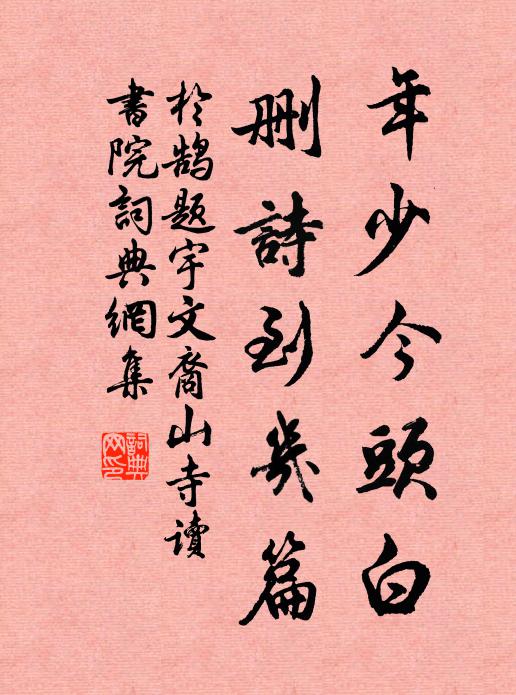 年少今頭白
删詩到幾篇
於鵠題宇文裔山寺讀
書院詞典網集
詞典网印